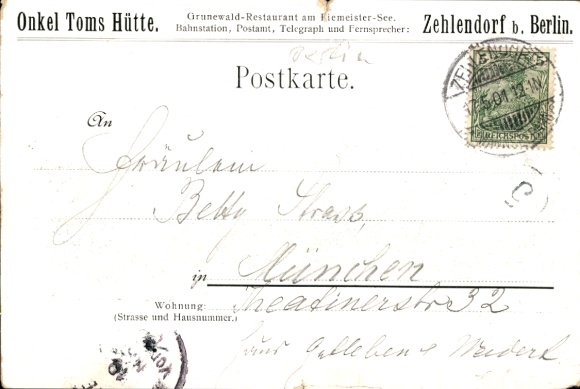 Onkel Toms Hütte.
Grunewald-Restaurant am Riemeister-See.
Bahnstation, Postamt, Telegraph und Fernsprecher:
Zehlendorf b. Berlin.
Berlin
Postkarte.
An
Fräulein
Betty Strass,
in München
Wohnung: Theatinerstr 32
(Strasse und Hausnummer.)
Haus
REICHSPOST